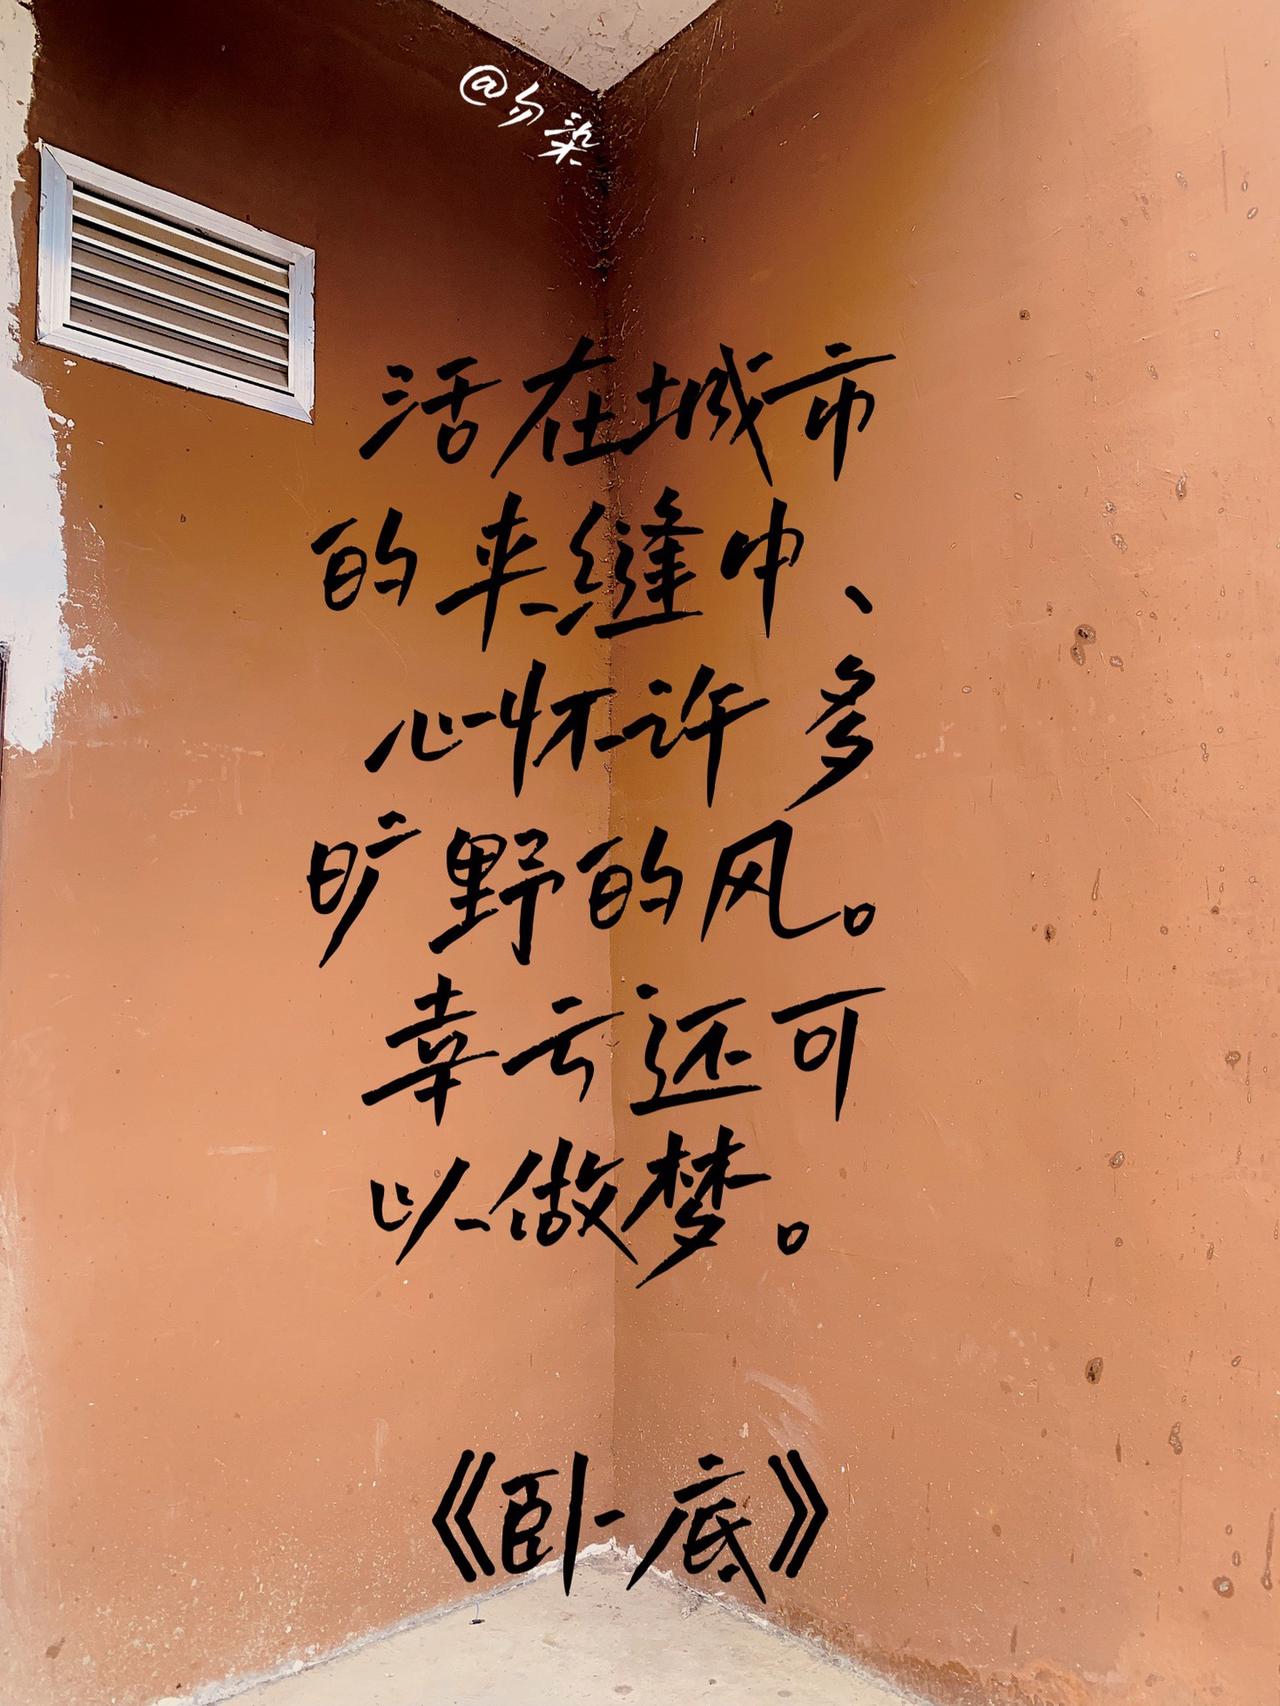 @勿染
活在城市
的夹缝中、
心怀许多
旷野的风。
幸亏还可
以做梦。
《卧底》